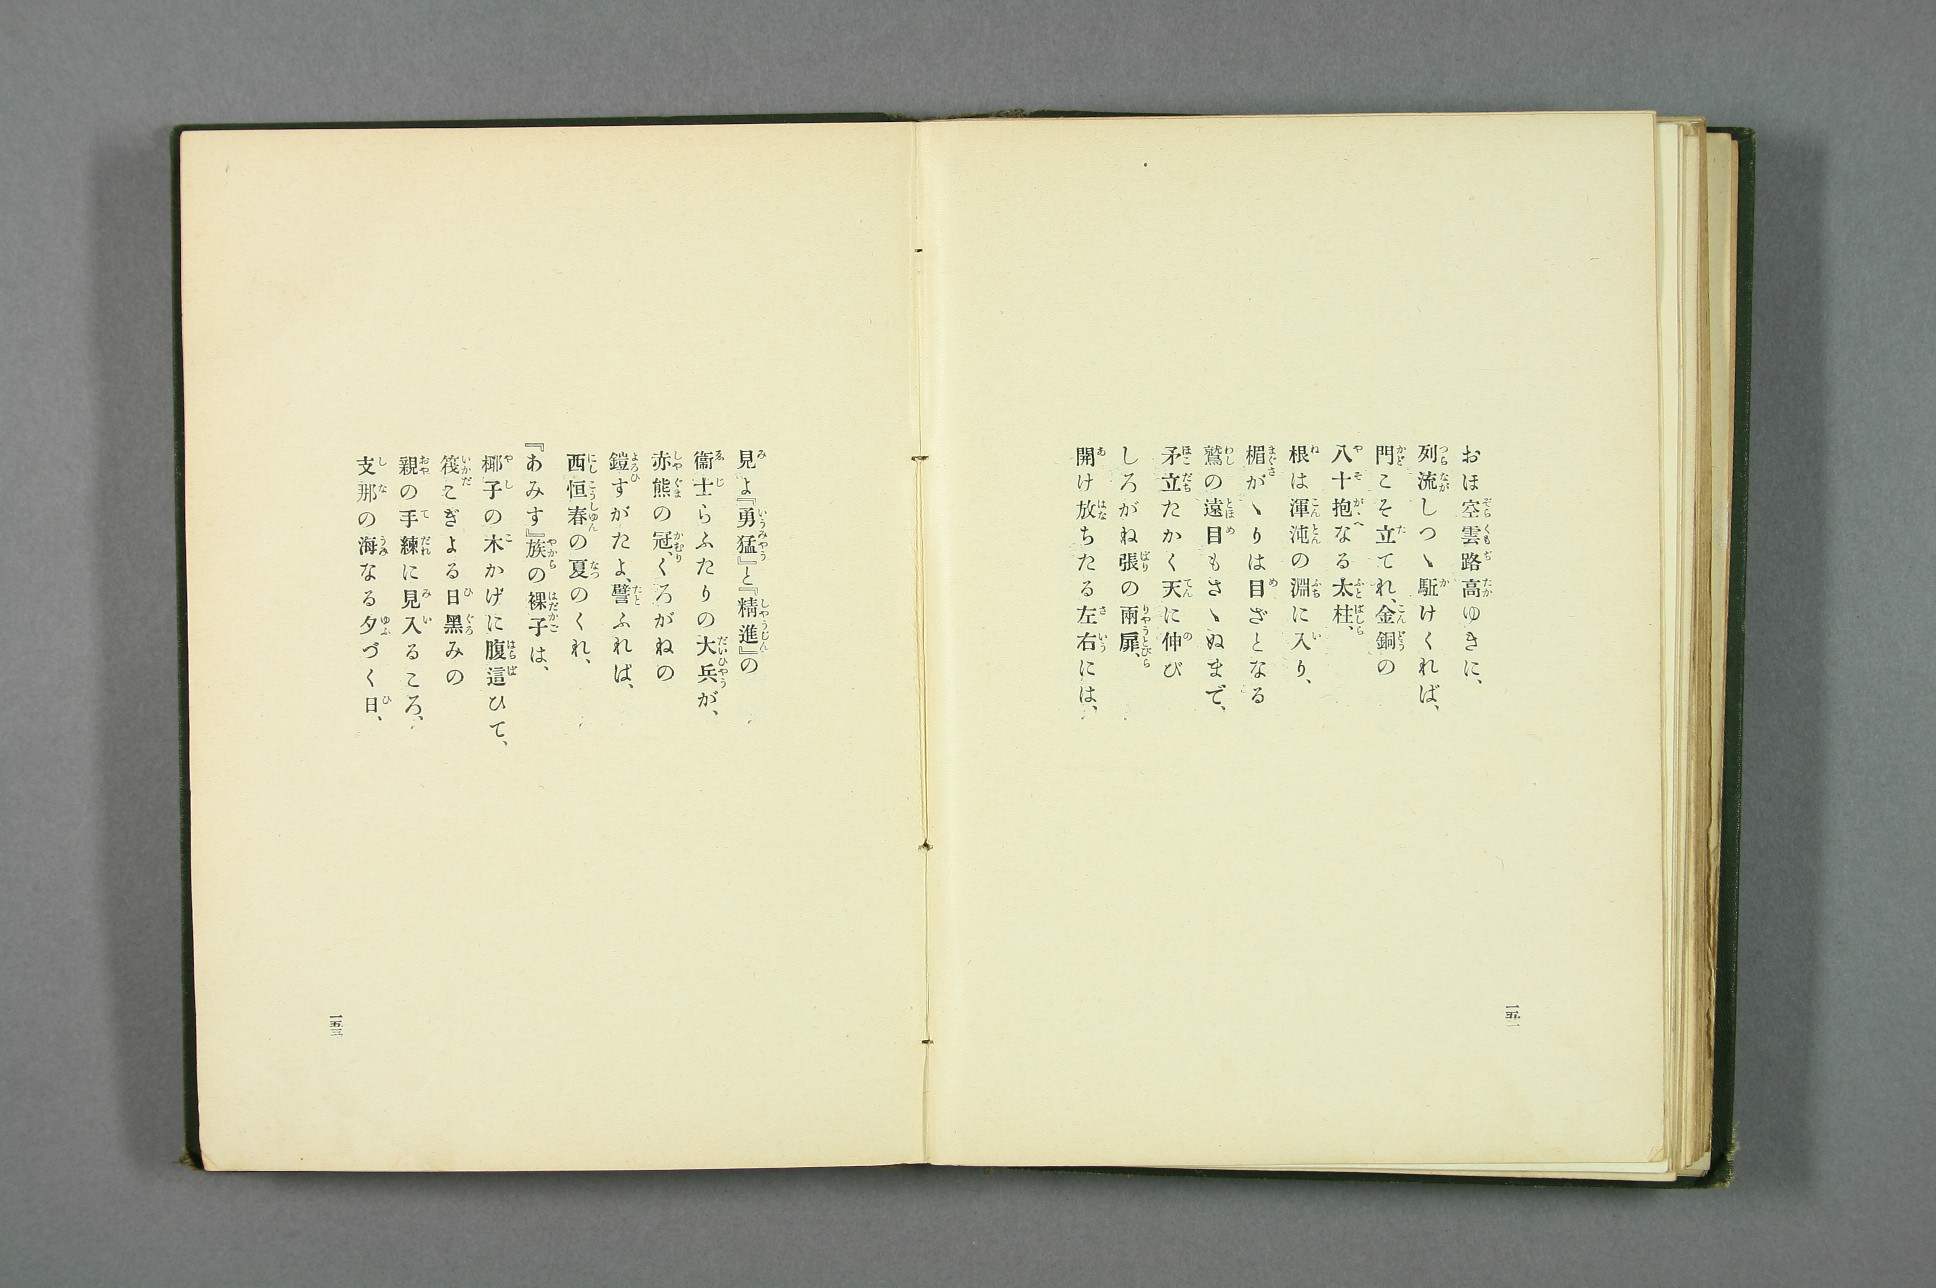 おほ空雲路高ゆきに、
列流しつゝ駈けくれば、
門こそ立てれ、金銅の
八十抱なる太柱、
根は渾沌の淵に入り、
楣がゝりは目ざとなる
鷲の遠目もさゝぬまで、
矛立たかく天に伸び
しろがね張の兩扉、
開け放ちたる左右には、
一五二
見よ『勇猛』と『精進』の
衞士らふたりの大兵が、
赤熊の冠、くろがねの
鎧すがたよ、譬ふれば、
西恒春の夏のくれ、
『あみす』族の裸子は、
椰子の木かげに腹這ひて、
筏こぎよる日黑みの
親の手練に見入るころ、
支那の海なる夕づく日、
一五三